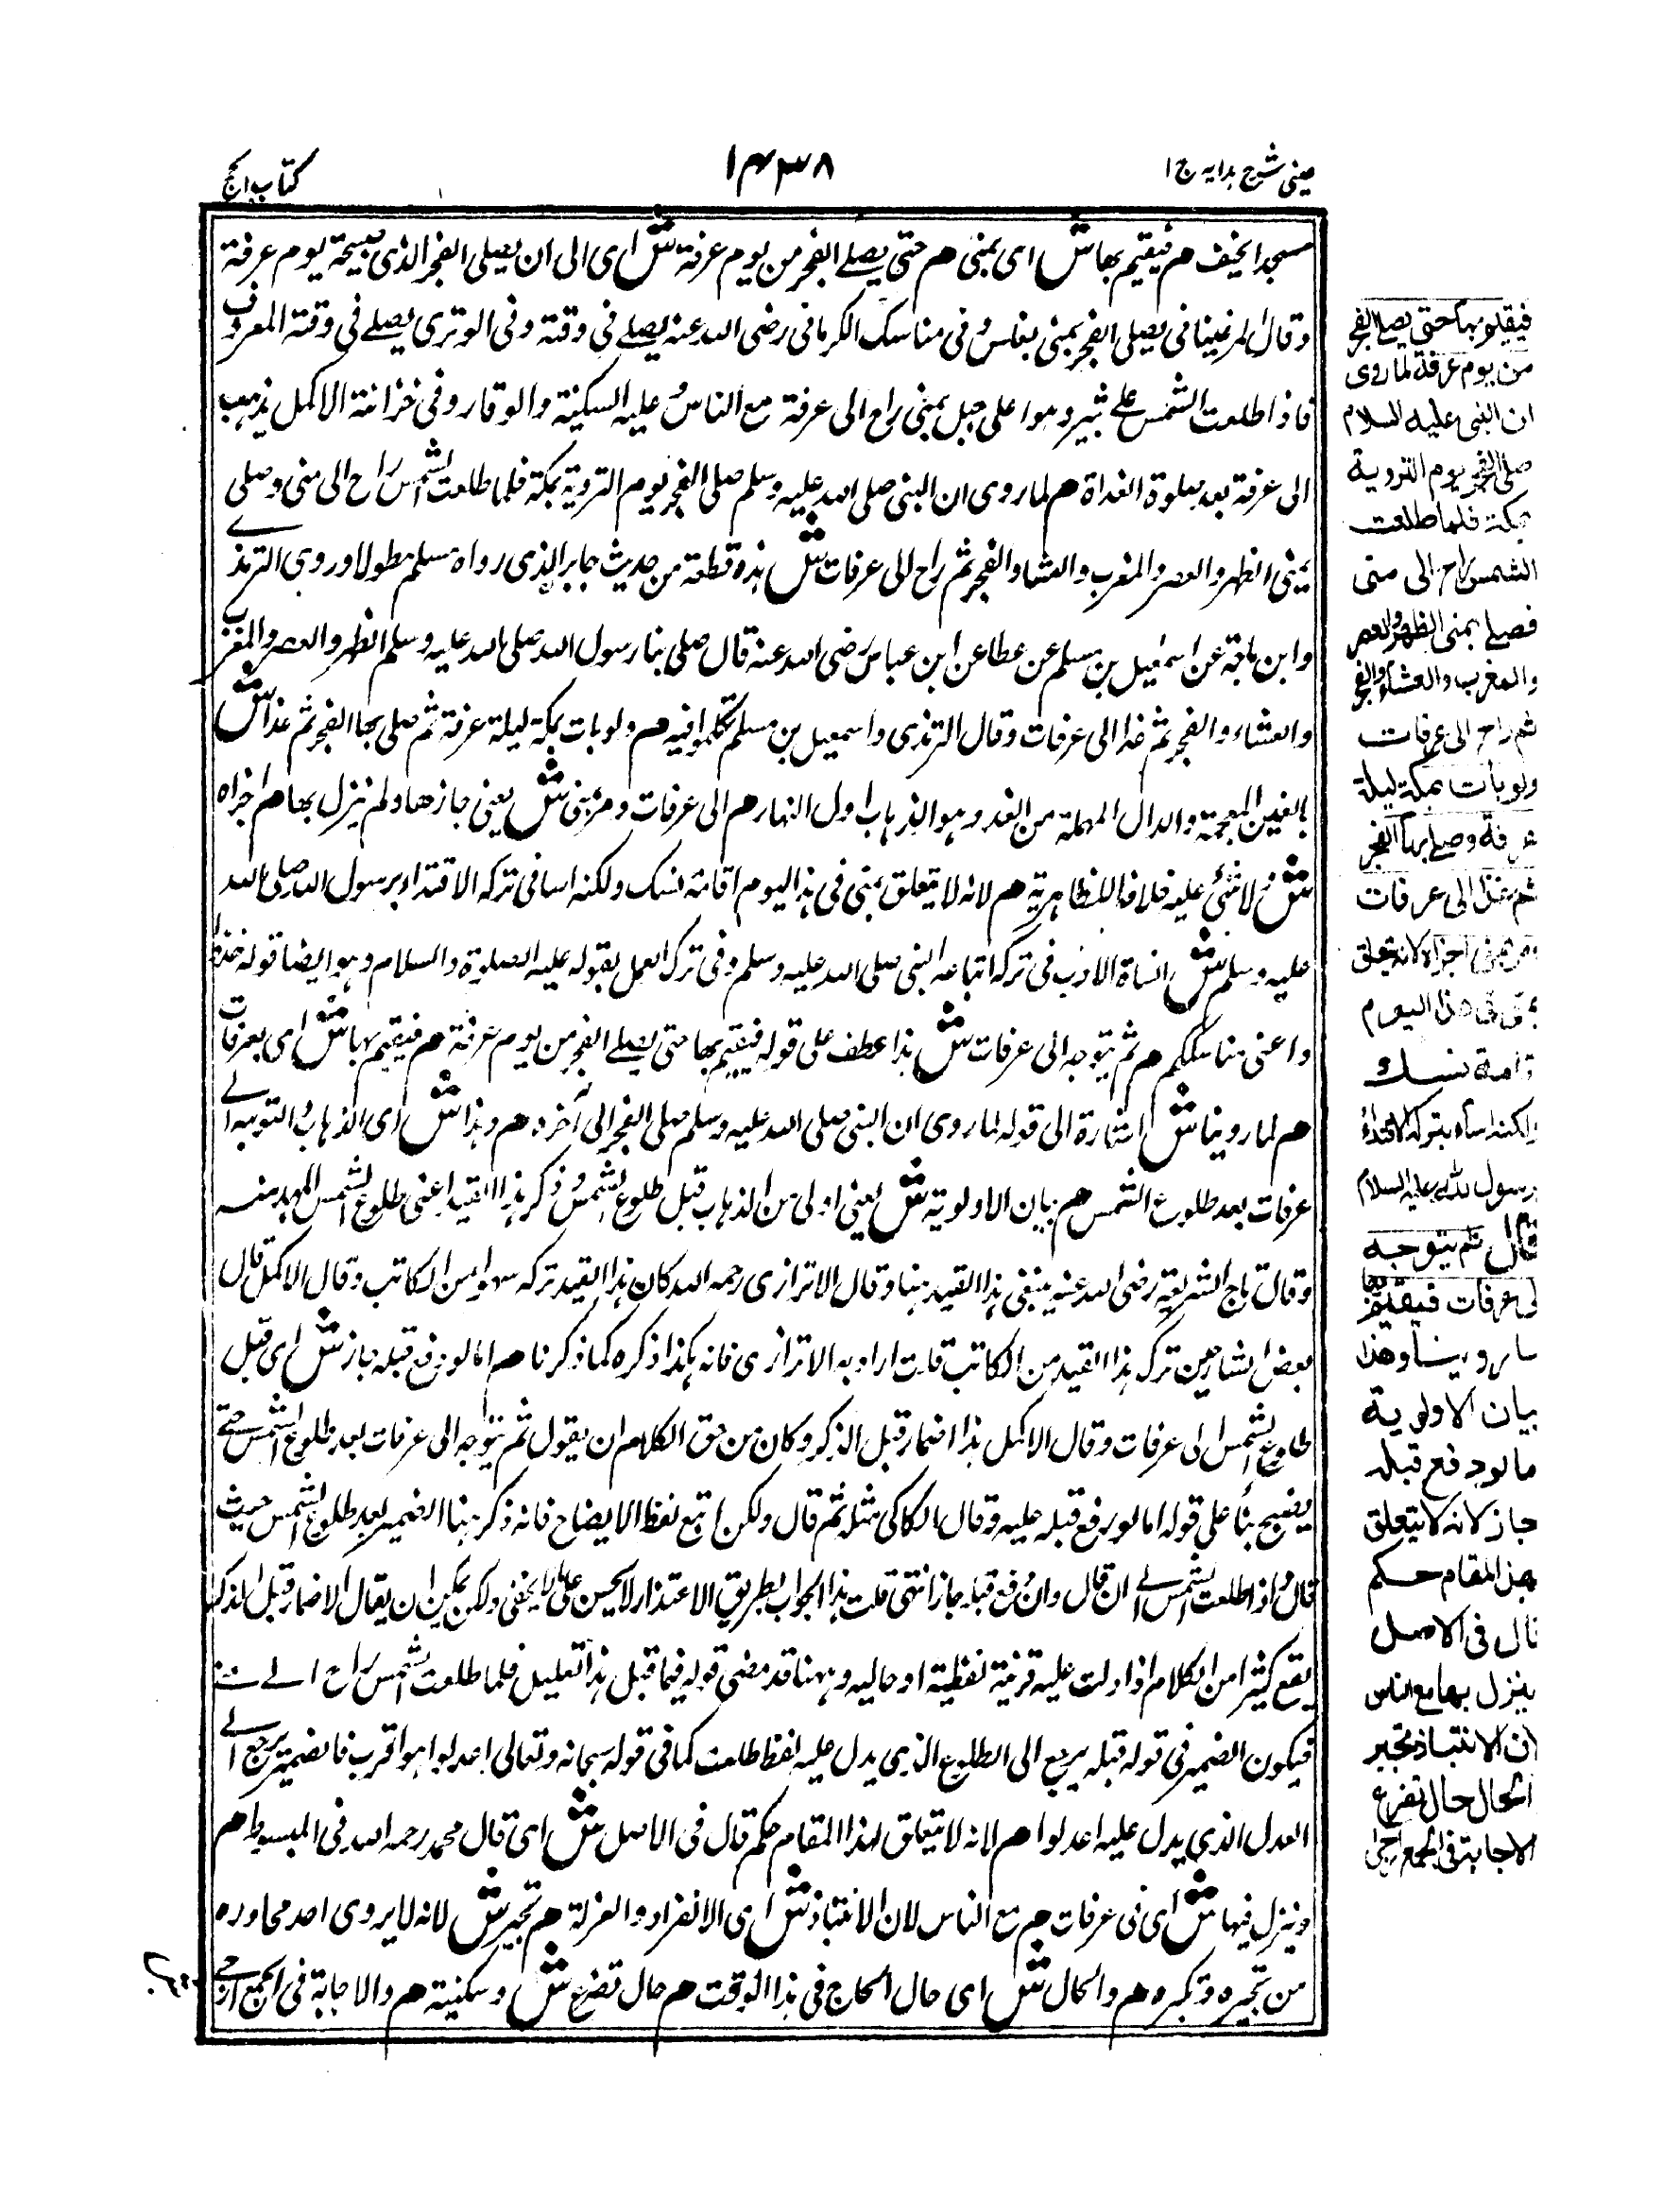 عینی شرح ہدایہ ج ۱
۱۴۳۸
کتاب الحج
مسجد الخیف هم فیقیم بها ش ای بمنی هم حتی یصلے الفجر من یوم عرفة ش ای الی ان یصلی الفجر الذی صبیحة یوم عرفة
وقال المرغینانی یصلی الفجر بمنی بغلس وفی مناسک الکرمانی رضی الله عنه یصلے فی وقته وفی الوتری یصلے فی وقته المعروف
فاذا طلعت الشمس علے ثبیر وهوا علی جبل بمنی راح الی عرفة مع الناس وعلیه السکینة والوقار وفی خزانة الاکمل یذهب
الی عرفة بعد صلوة الغداة هم لما روی ان النبی صلی الله علیه وسلم صلی الفجر یوم الترویة بمکة فلما طلعت الشمس راح الی منی وصلی
بمنی الظهر والعصر والمغرب والعشاء والفجر ثم راح الی عرفات ش هذه قطعة من حدیث جابر الذی رواه مسلم مطولا وروی الترمذے
وابن ماجة عن اسمٰعیل بن مسلم عن عطا عن ابن عباس رضی الله عنه قال صلی بنا رسول الله صلی الله علیه وسلم الظهر والعصر والمغرب
والعشاء والفجر ثم غدا الی عرفات وقال الترمذی واسمعیل بن مسلم تکلموا فیه هم ولو بات بمکة لیلة عرفة ثم صلی بها الفجر ثم غدا ش
بالغین المعجمة والدال المهملة من الغدو وهو الذهاب اول النهار هم الی عرفات ومر بمنی ش یعنی جازها ولم ینزل بها هم اجزاه
ش لا شئ علیه خلافا للظاهریة هم لانه لا یتعلق بمنی فی هذا الیوم اقامة نسک ولکنه اسا فی ترکه الاقتداء برسول الله صلی الله
علیه وسلم ش اساة الادب فی ترکه اتباعه النبی صلی الله علیه وسلم وفی ترک العمل بقوله علیه الصلوة والسلام وهو ایضا قوله خذوا
واعنی مناسککم هم ثم یتوجه الی عرفات ش هذا عطف علی قوله فیقیم بها حتی یصلے الفجر من یوم عرفة هم فیقیم بها ش ای بعرفات
هم لما روینا ش اشارة الی قوله لما روی ان النبی صلی الله علیه وسلم صلی الفجر الی آخره هم وهذا ش ای الذهاب والتوجه الے
عرفات بعد طلوع الشمس هم بیان الاولویة ش یعنی اولی من الذهاب قبل طلوع الشمس وذکر هذا القید اعنی طلوع الشمس
وقال تاج الشریعة رضی الله عنه ینبغی هذا القید هنا وقال الاترازی رحمه الله کان هذا القید ترکه سهوا من الکاتب وقال الاکمل قال
بعض الشارحین ترک هذا القید من الکاتب قلت اراد به الاترازی فانه هکذا ذکره کما ذکرنا هم اما لو دفع قبله جاز ش ای قبل
طلوع الشمس الی عرفات وقال الاکمل هذا اضمار قبل الذکر وکان من حق الکلام ان یقول ثم یتوجه الی عرفات بعد طلوع الشمس حتے
یصح بناً علی قوله اما لو دفع قبله علیه وقال الکاکی مثله ثم قال ولکن اتبع لفظ الایضاح فانه ذکر هنا الضمیر بعد طلوع الشمس حیث
قال واذا طلعت الشمس الے ان قال وان دفع قبله جاز انتهی قلت هذا الجواب بطریق الاعتذار لا یحسن علی ما لا یخفی ولکن یمکن ان یقال الاضمار قبل الذکر
یقع کثیرا من الکلام اذا دلت علیه قرینة لفظیة او حالیه وههنا قد مضی قوله فیما قبل هذا التعلیل فلما طلعت الشمس راح الے منے
فیکون الضمیر فی قوله قبله یرجع الی الطلوع الذی یدل علیه لفظ طلعت کما فی قوله سبحانه وتعالی اعدلوا هو اقرب فالضمیر یرجع الے
العدل الذی یدل علیه اعدلوا هم لانه لا یتعلق بهذا المقام حکم قال فی الاصل ش ای قال محمد رحمه الله فی المبسوط هم
وینزل فیها ش ای فی عرفات هم مع الناس لان الانتباذ ش ای الانفراد والعزلة هم تجبر ش لانه لا یروی احد محاوره
من تجبره وتکبره هم والحال ش ای حال الحاج فی هذا الوقت هم حال تضرع ش وسکنیة هم والاجابة فی الجمع ارجے
فیقیم بها حتی یصلے الفجر
من یوم عرفة لما روی
ان النبی علیه السلام
صلی الفجر یوم الترویة
بمکة فلما طلعت
الشمس راح الی منی
فصلے بمنی الظهر والعصر
والمغرب والعشاء والفجر
ثم راح الی عرفات
ولو بات بمکة لیلة
عرفة وصلے بها الفجر
ثم غدا الی عرفات
ومر بمنی اجزاه لانه لا یتعلق
بمنی فی هذا الیوم
اقامة نسک و
لکنه اساء بترکه الاقتداء
برسول الله علیه السلام
قال ثم یتوجه
الی عرفات فیقیم بها
لما روینا وهذا
بیان الاولویة
اما لو دفع قبله
جاز لانه لا یتعلق
بهذا المقام حکم
قال فی الاصل
وینزل بها مع الناس
لان الانتباذ تجبر
والحال حال تضرع
والاجابة فی الجمع ارجی